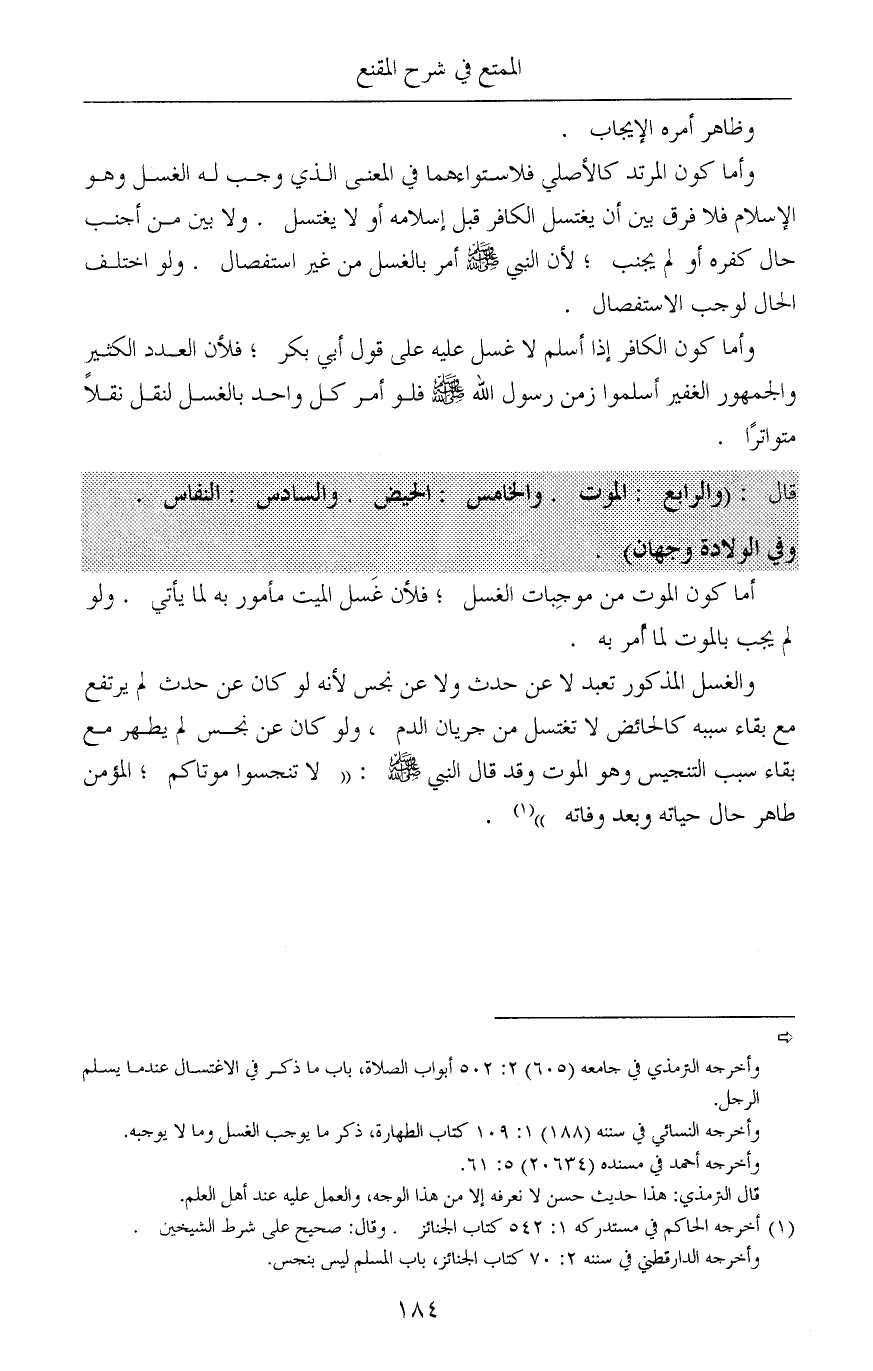 الممتع في شرح المقنع
وظاهر أمره الإيجاب .
وأما كون المرتد كالأصلي فلاستواءهما في المعنى الذي وجب له الغسل وهو
الإسلام فلا فرق بين أن يغتسل الكافر قبل إسلامه أو لا يغتسل . ولا بين من أجنب
حال كفره أو لم يجنب ؛ لأن النبي ﷺ أمر بالغسل من غير استفصال . ولو اختلف
الحال لوجب الاستفصال .
وأما كون الكافر إذا أسلم لا غسل عليه على قول أبي بكر ؛ فلأن العدد الكثير
والجمهور الغفير أسلموا زمن رسول الله ﷺ فلو أمر كل واحد بالغسل لنقل نقلاً
متواترًا .
قال : (والرابع : الموت . والخامس : الحيض . والسادس : النفاس .
وفي الولادة وجهان) .
أما كون الموت من موجِبات الغسل ؛ فلأن غَسل الميت مأمور به لما يأتي . ولو
لم يجب بالموت لما أُمر به .
والغسل المذكور تعبد لا عن حدث ولا عن نجس لأنه لو كان عن حدث لم يرتفع
مع بقاء سببه كالحائض لا تغتسل من جريان الدم ، ولو كان عن نجس لم يطهر مع
بقاء سبب التنجيس وهو الموت وقد قال النبي ﷺ : (( لا تنجسوا موتاكم ؛ المؤمن
طاهر حال حياته وبعد وفاته ))(١) .
⇨
وأخرجه الترمذي في جامعه (٦٠٥) ٢: ٥٠٢ أبواب الصلاة، باب ما ذكر في الاغتسال عندما يسلم
الرجل.
وأخرجه النسائي في سننه (١٨٨) ١: ١٠٩ كتاب الطهارة، ذكر ما يوجب الغسل وما لا يوجبه.
وأخرجه أحمد في مسنده (٢٠٦٣٤) ٥: ٦١.
قال الترمذي: هذا حديث حسن لا نعرفه إلا من هذا الوجه، والعمل عليه عند أهل العلم.
(١) أخرجه الحاكم في مستدركه ١: ٥٤٢ كتاب الجنائز . وقال: صحيح على شرط الشيخين .
وأخرجه الدارقطني في سننه ٢: ٧٠ كتاب الجنائز، باب المسلم ليس بنجس.
١٨٤